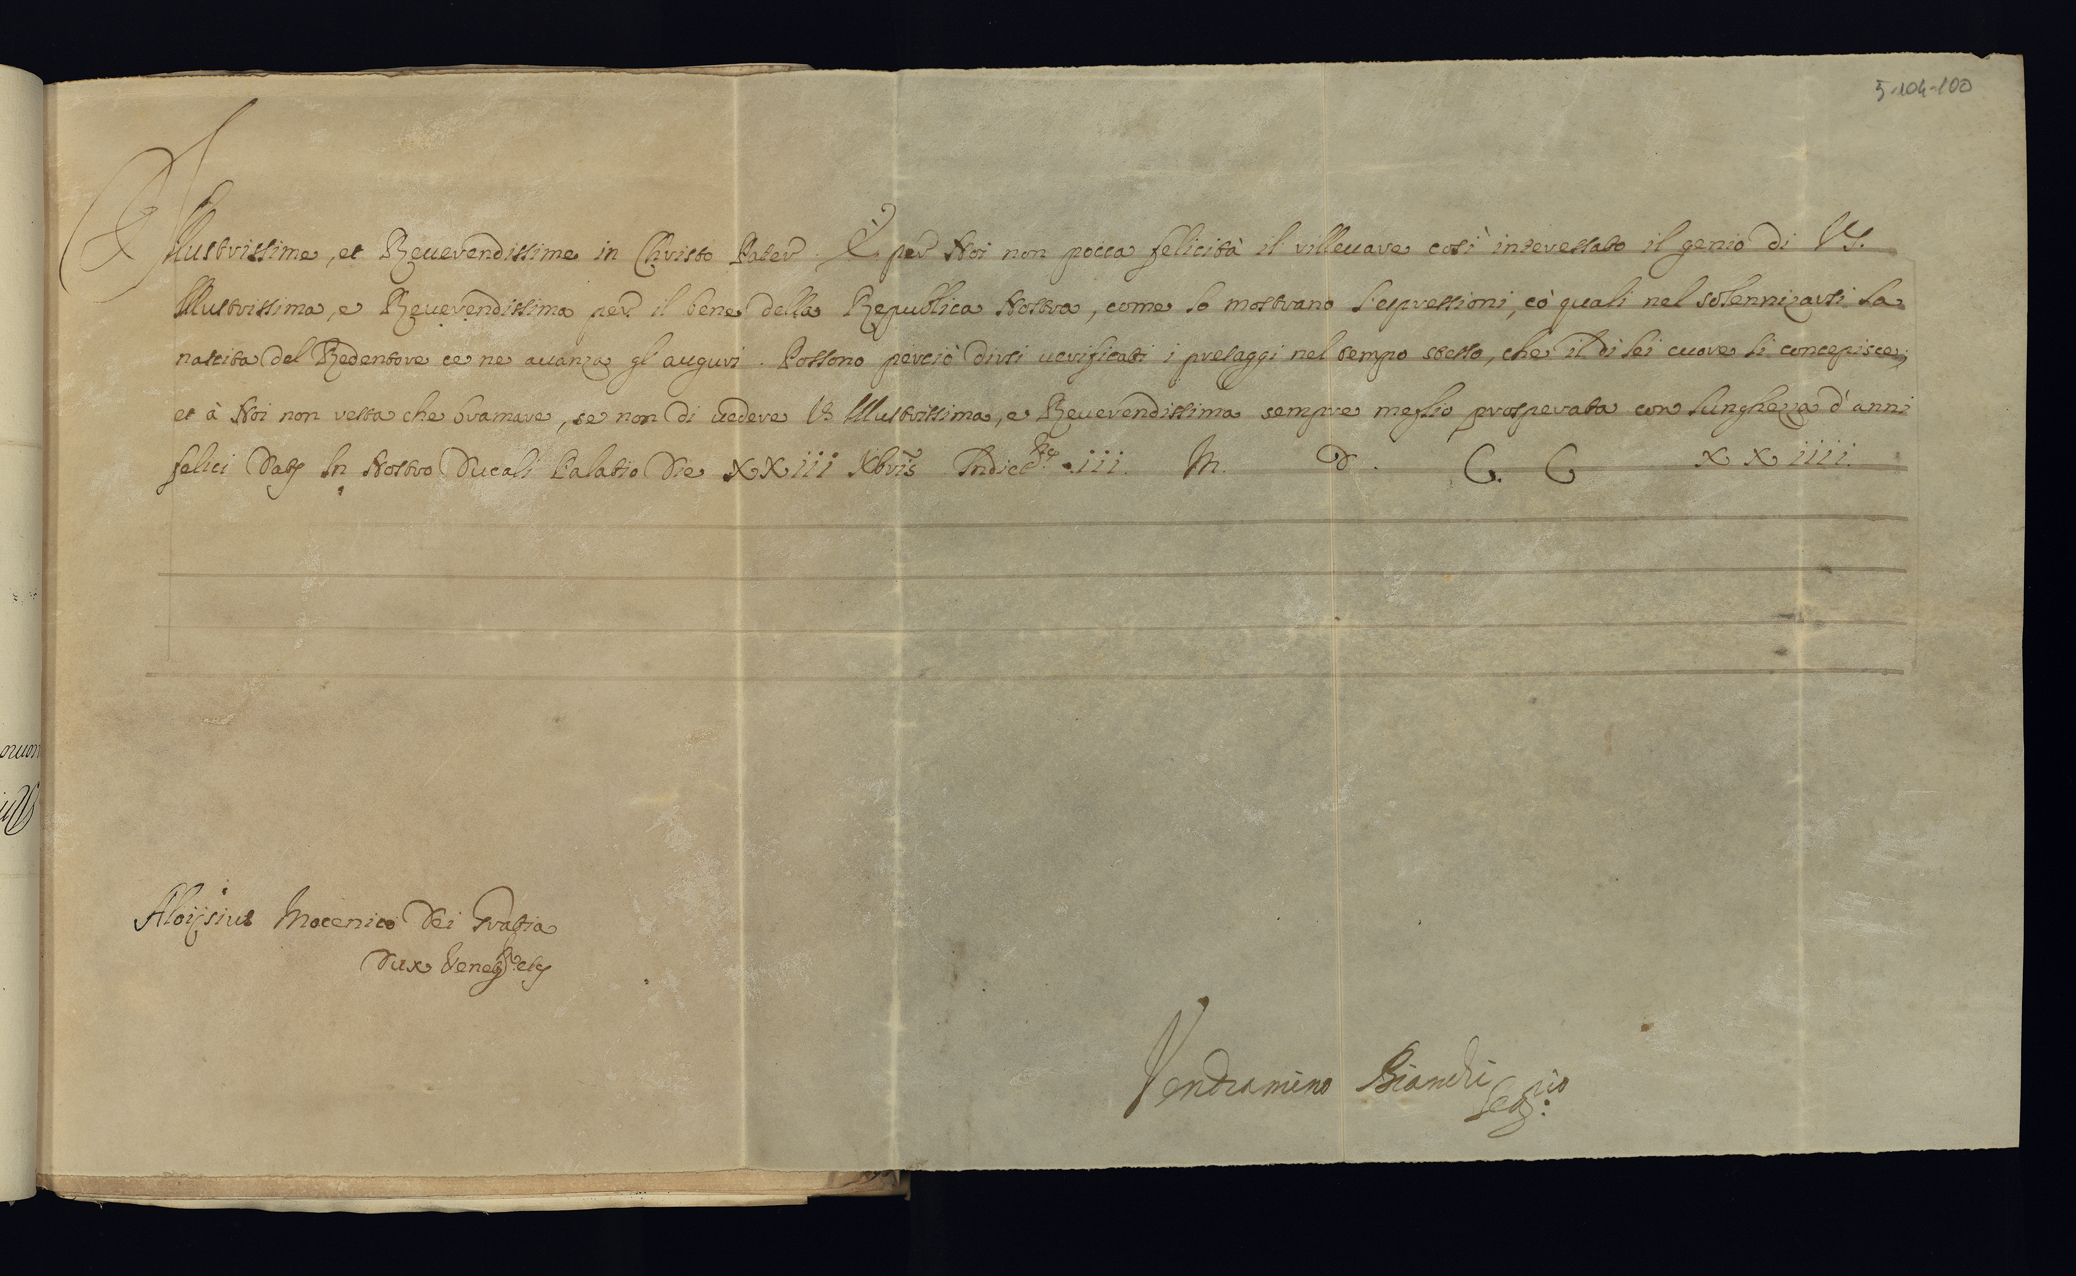 5-104-100
Illustrissime, et Reuerendissime in Christo Pater. È per Noi non pocca felicità il rilleuare così interessato il genio di VS.
Illustrissima, e Reuerendissima per il bene della Republica Nostra, come lo mostrano l'espressioni, cò quali nel solennizarsi la
nascita del Redentore ce ne auanza gl'auguri. Possono perciò dirsi uerificati i presaggi nel tempo stesso, che il di lei cuore li concepisce;
et à Noi non resta che bramare, se non di uedere VS Illustrissima, e Reuerendissima sempre meglio prosperata con lunghezza d'anni
felici Datę In Nostro Ducali Palatio Die XXIII Xbris Indict.ne III. M. D. C. C XXIIII.
Aloijsius Mocenico Dei Gratia
Dux Venet. etc
Vendramino Bianchi
Seg.rio